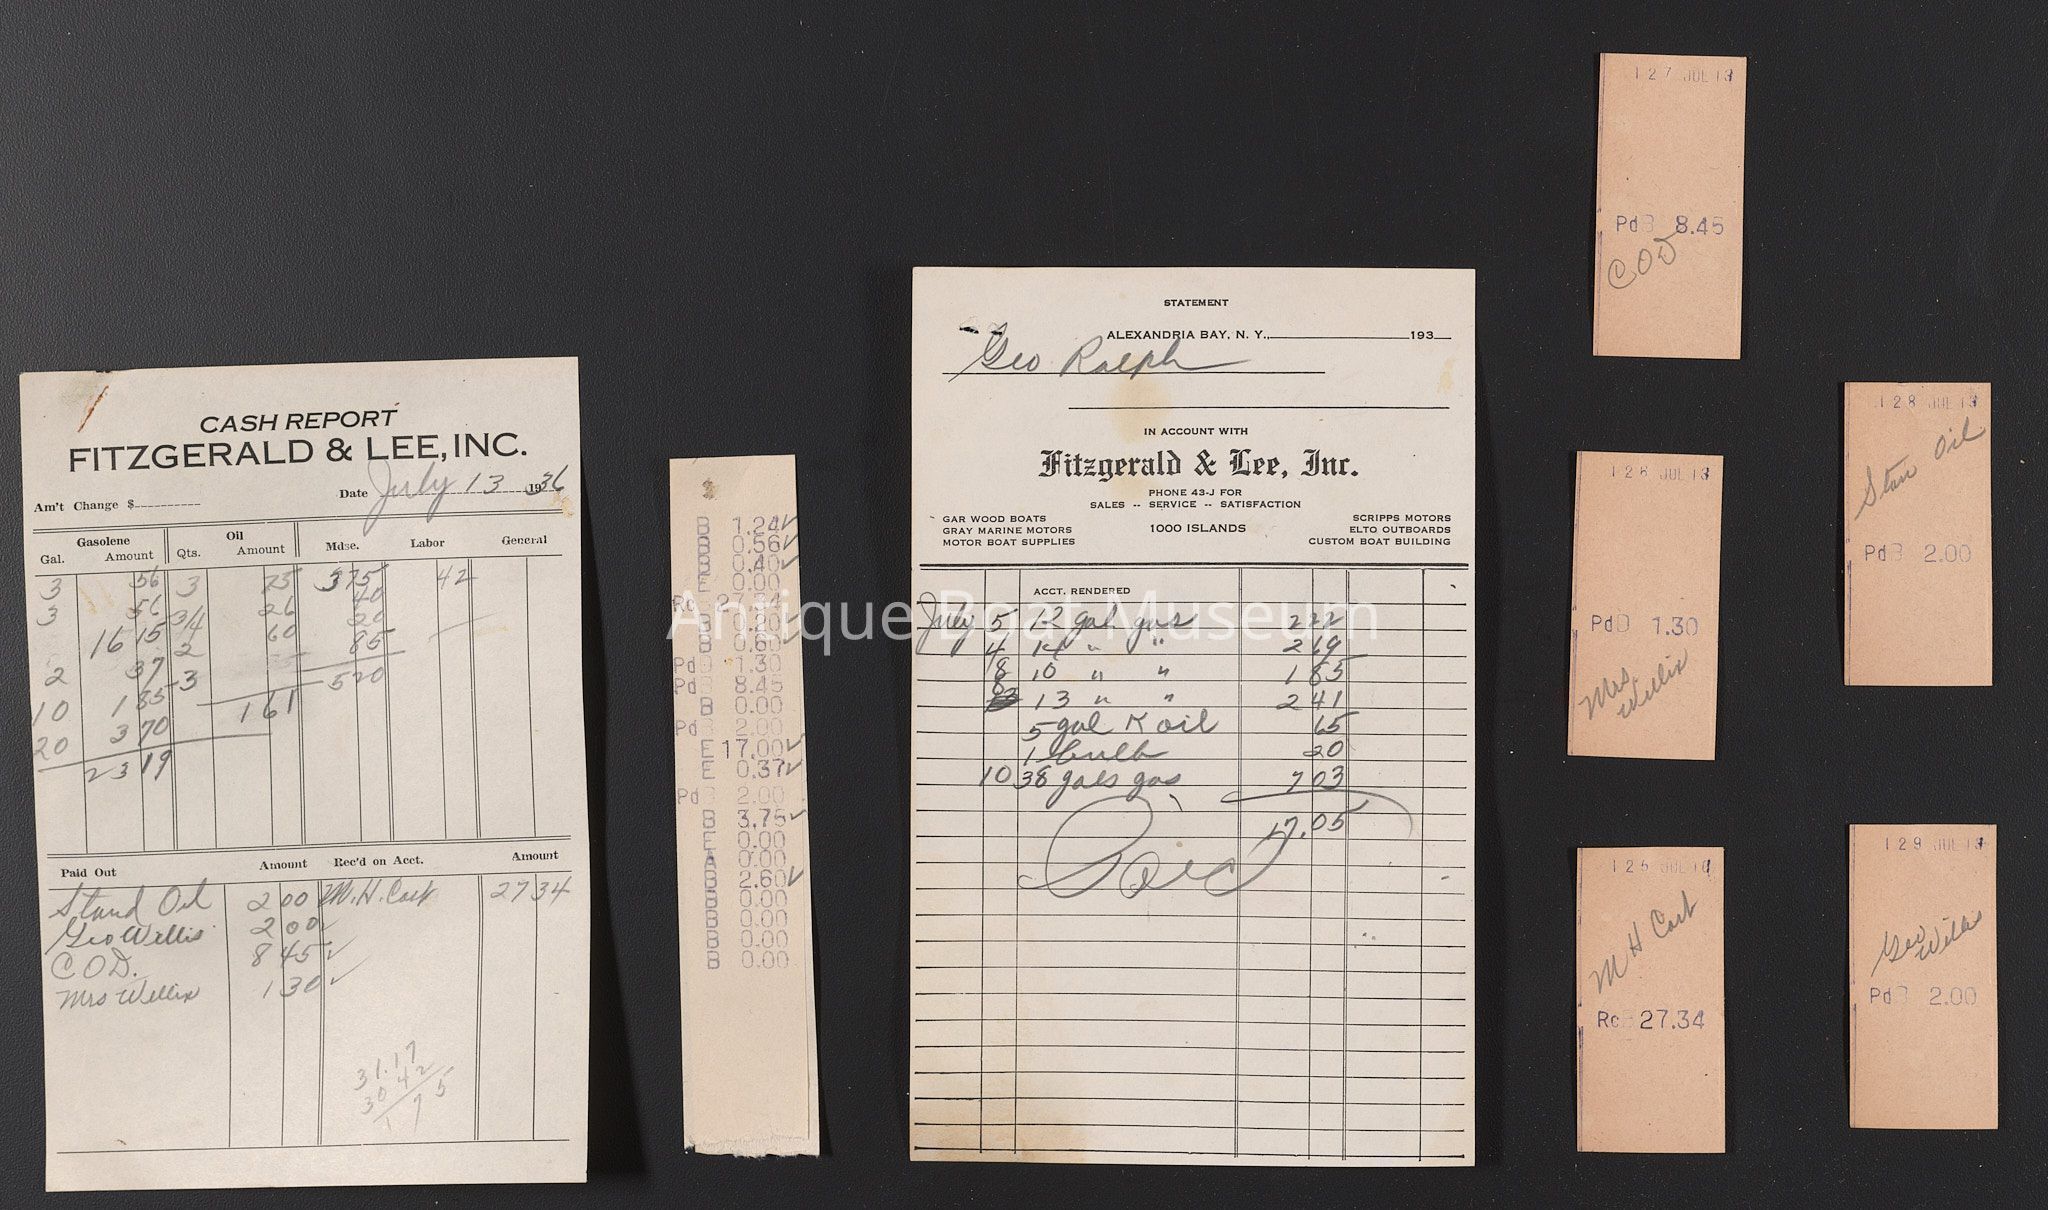 CASH REPORT
FITZGERALD & LEE, INC.
Am't Change $
Date July 13 1936
Gasolene Oil
Gal. Amount Qts. Amount Mdse. Labor General
3 56 3 75 375 42
3 56 3/4 26 40
16 15 2 60 20
2 37 3 85
10 185 161 520
20 370
2319
Paid Out Amount Rec'd on Acct. Amount
Stand Oil 2 00 M. H. Cart 27 34
Geo Willis 2 00
C O D. 8 45 ✓
Mrs Willix 1 30 ✓
31.17
30 42
75
B 1.24 ✓
B 0.56 ✓
B 0.40 ✓
E 0.00
Rc 27.34
B 0.20 ✓
B 0.60 ✓
Pd 1.30
Pd 8.45
B 0.00
Pd 2.00
E 17.00 ✓
E 0.37 ✓
Pd 2.00
B 3.75 ✓
E 0.00
A 0.00
B 2.60 ✓
B 0.00
B 0.00
B 0.00
B 0.00
STATEMENT
ALEXANDRIA BAY, N. Y., 193
Geo Ralph
IN ACCOUNT WITH
Fitzgerald & Lee, Inc.
PHONE 43-J FOR
SALES -- SERVICE -- SATISFACTION
GAR WOOD BOATS
GRAY MARINE MOTORS
MOTOR BOAT SUPPLIES
1000 ISLANDS
SCRIPPS MOTORS
ELTO OUTBOARDS
CUSTOM BOAT BUILDING
ACCT. RENDERED
July 5 12 gal gas 222
4 14 " " 269
8 10 " " 185
8 13 " " 241
5 gal K oil 65
1 bulb 20
10 38 gals gas 703
17.05
Paid
127 JUL 13
Pd 8.45
COD
126 JUL 13
Pd 1.30
Mrs Willix
125 JUL
M H Cart
Rc 27.34
128 JUL 13
Stan Oil
Pd 2.00
129 JUL 13
Geo Willis
Pd 2.00
Antique Boat Museum